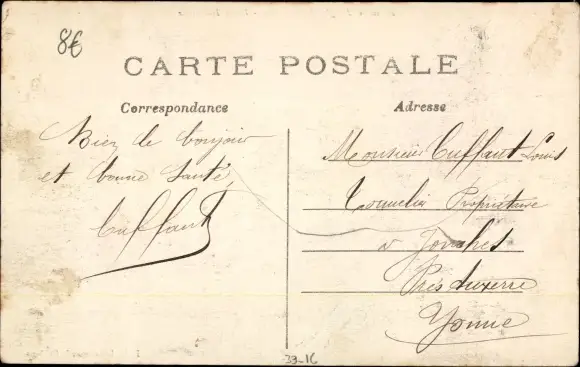 8€
CARTE POSTALE
Correspondance
Adresse
Bien le bonjour
et bonne santé
Cuffaut
Monsieur Cuffaut Louis
Tonnelier Propriétaire
à Jonches
Près Auxerre
Yonne
39-16